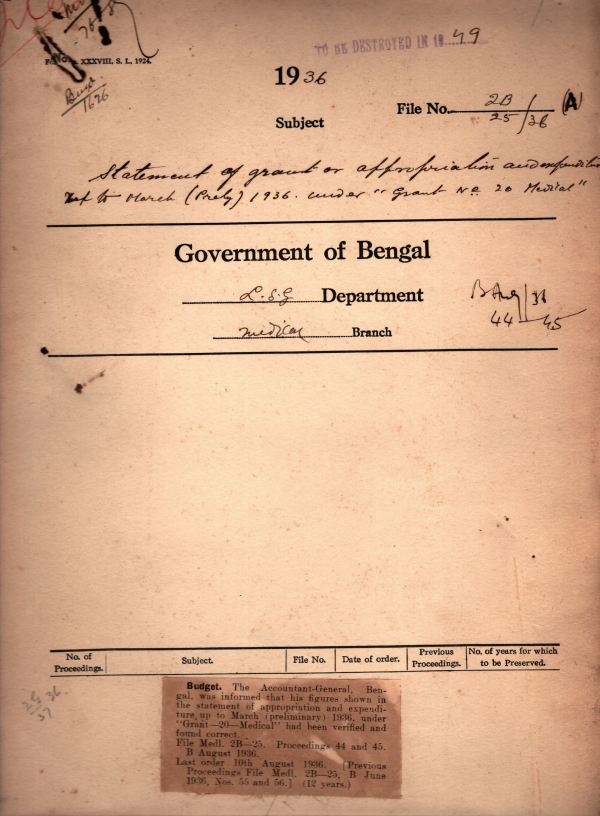 TO BE DESTROYED IN 19 49
XXXVIII, S. L., 1924.
1936
File No. 2B/25/36 (A)
Subject
Statement of grant or appropriation and expenditure
up to March (Prely) 1936. under "Grant No 20 Medical"
Government of Bengal
L.S.G Department
Medical Branch
B Aug/36
44 — 45
No. of Proceedings. Subject. File No. Date of order. Previous Proceedings. No. of years for which to be Preserved.
Budget. The Accountant-General, Ben-
gal, was informed that his figures shown in
the statement of appropriation and expendi-
ture up to March (preliminary) 1936, under
"Grant—20—Medical" had been verified and
found correct.
File Medl. 2B—25. Proceedings 44 and 45.
B August 1936.
Last order 10th August 1936. [Previous
Proceedings File Medl. 2B—25, B June
1936, Nos. 55 and 56.] (12 years.)